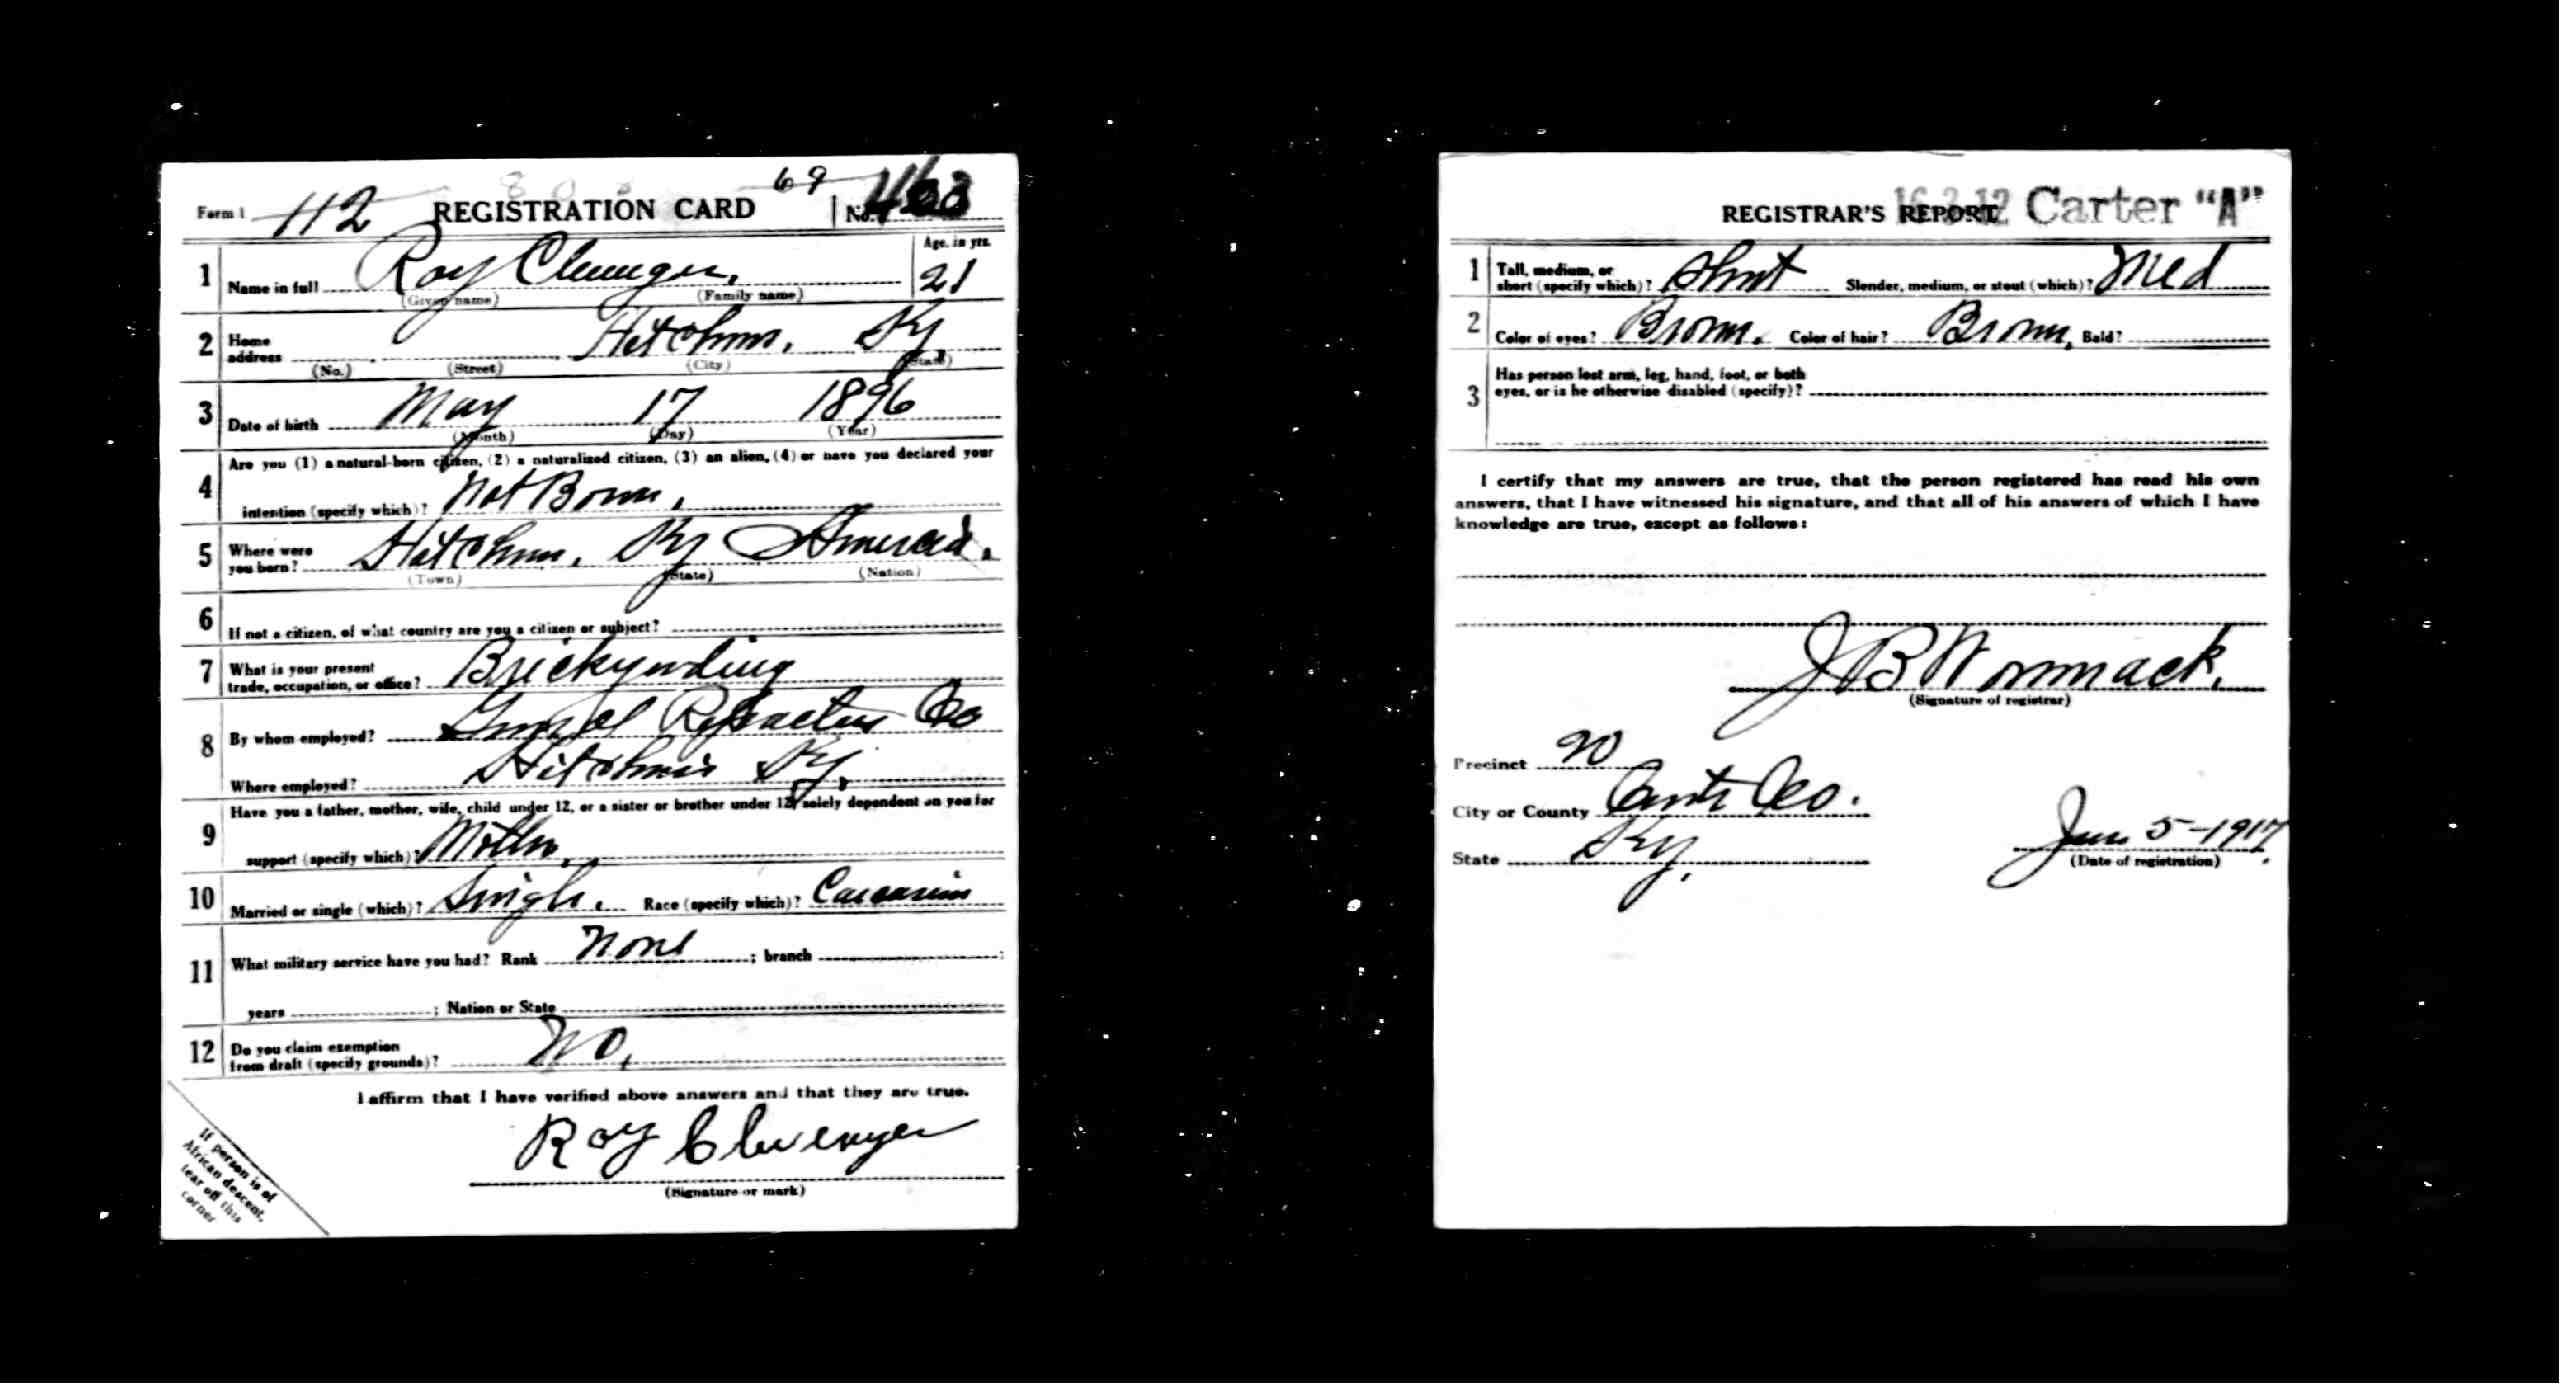 Form 1 112 REGISTRATION CARD 69 No.
1 Name in full Roy Clevenger. Age, in yrs. 21
(Given name) (Family name)
2 Home address Hitchins, Ky.
(No.) (Street) (City) (State)
3 Date of birth May 17 1896
(Month) (Day) (Year)
4 Are you (1) a natural-born citizen, (2) a naturalized citizen, (3) an alien, (4) or have you declared your
intention (specify which)? Nat Born.
5 Where were you born? Hitchins, Ky America.
(Town) (State) (Nation)
6 If not a citizen, of what country are you a citizen or subject?
7 What is your present
trade, occupation, or office?
8 By whom employed? Refractus Co
Where employed? Hitchins Ky.
9 Have you a father, mother, wife, child under 12, or a sister or brother under 12, solely dependent on you for
support (specify which)? Mother.
10 Married or single (which)? Single. Race (specify which)? Caucasian
11 What military service have you had? Rank None ; branch ;
years ; Nation or State
12 Do you claim exemption
from draft (specify grounds)? No.
I affirm that I have verified above answers and that they are true.
Roy Clevenger
(Signature or mark)
If person is of
African descent,
tear off this
corner
REGISTRAR'S REPORT 16-3-12 Carter "A"
1 Tall, medium, or
short (specify which)? Short Slender, medium, or stout (which)? Med
2 Color of eyes? Brown. Color of hair? Brown. Bald?
3 Has person lost arm, leg, hand, foot, or both
eyes, or is he otherwise disabled (specify)?
I certify that my answers are true, that the person registered has read his own
answers, that I have witnessed his signature, and that all of his answers of which I have
knowledge are true, except as follows:
J B Wommack.
(Signature of registrar)
Precinct 20
City or County Carter Co.
State Ky. June 5-1917.
(Date of registration)